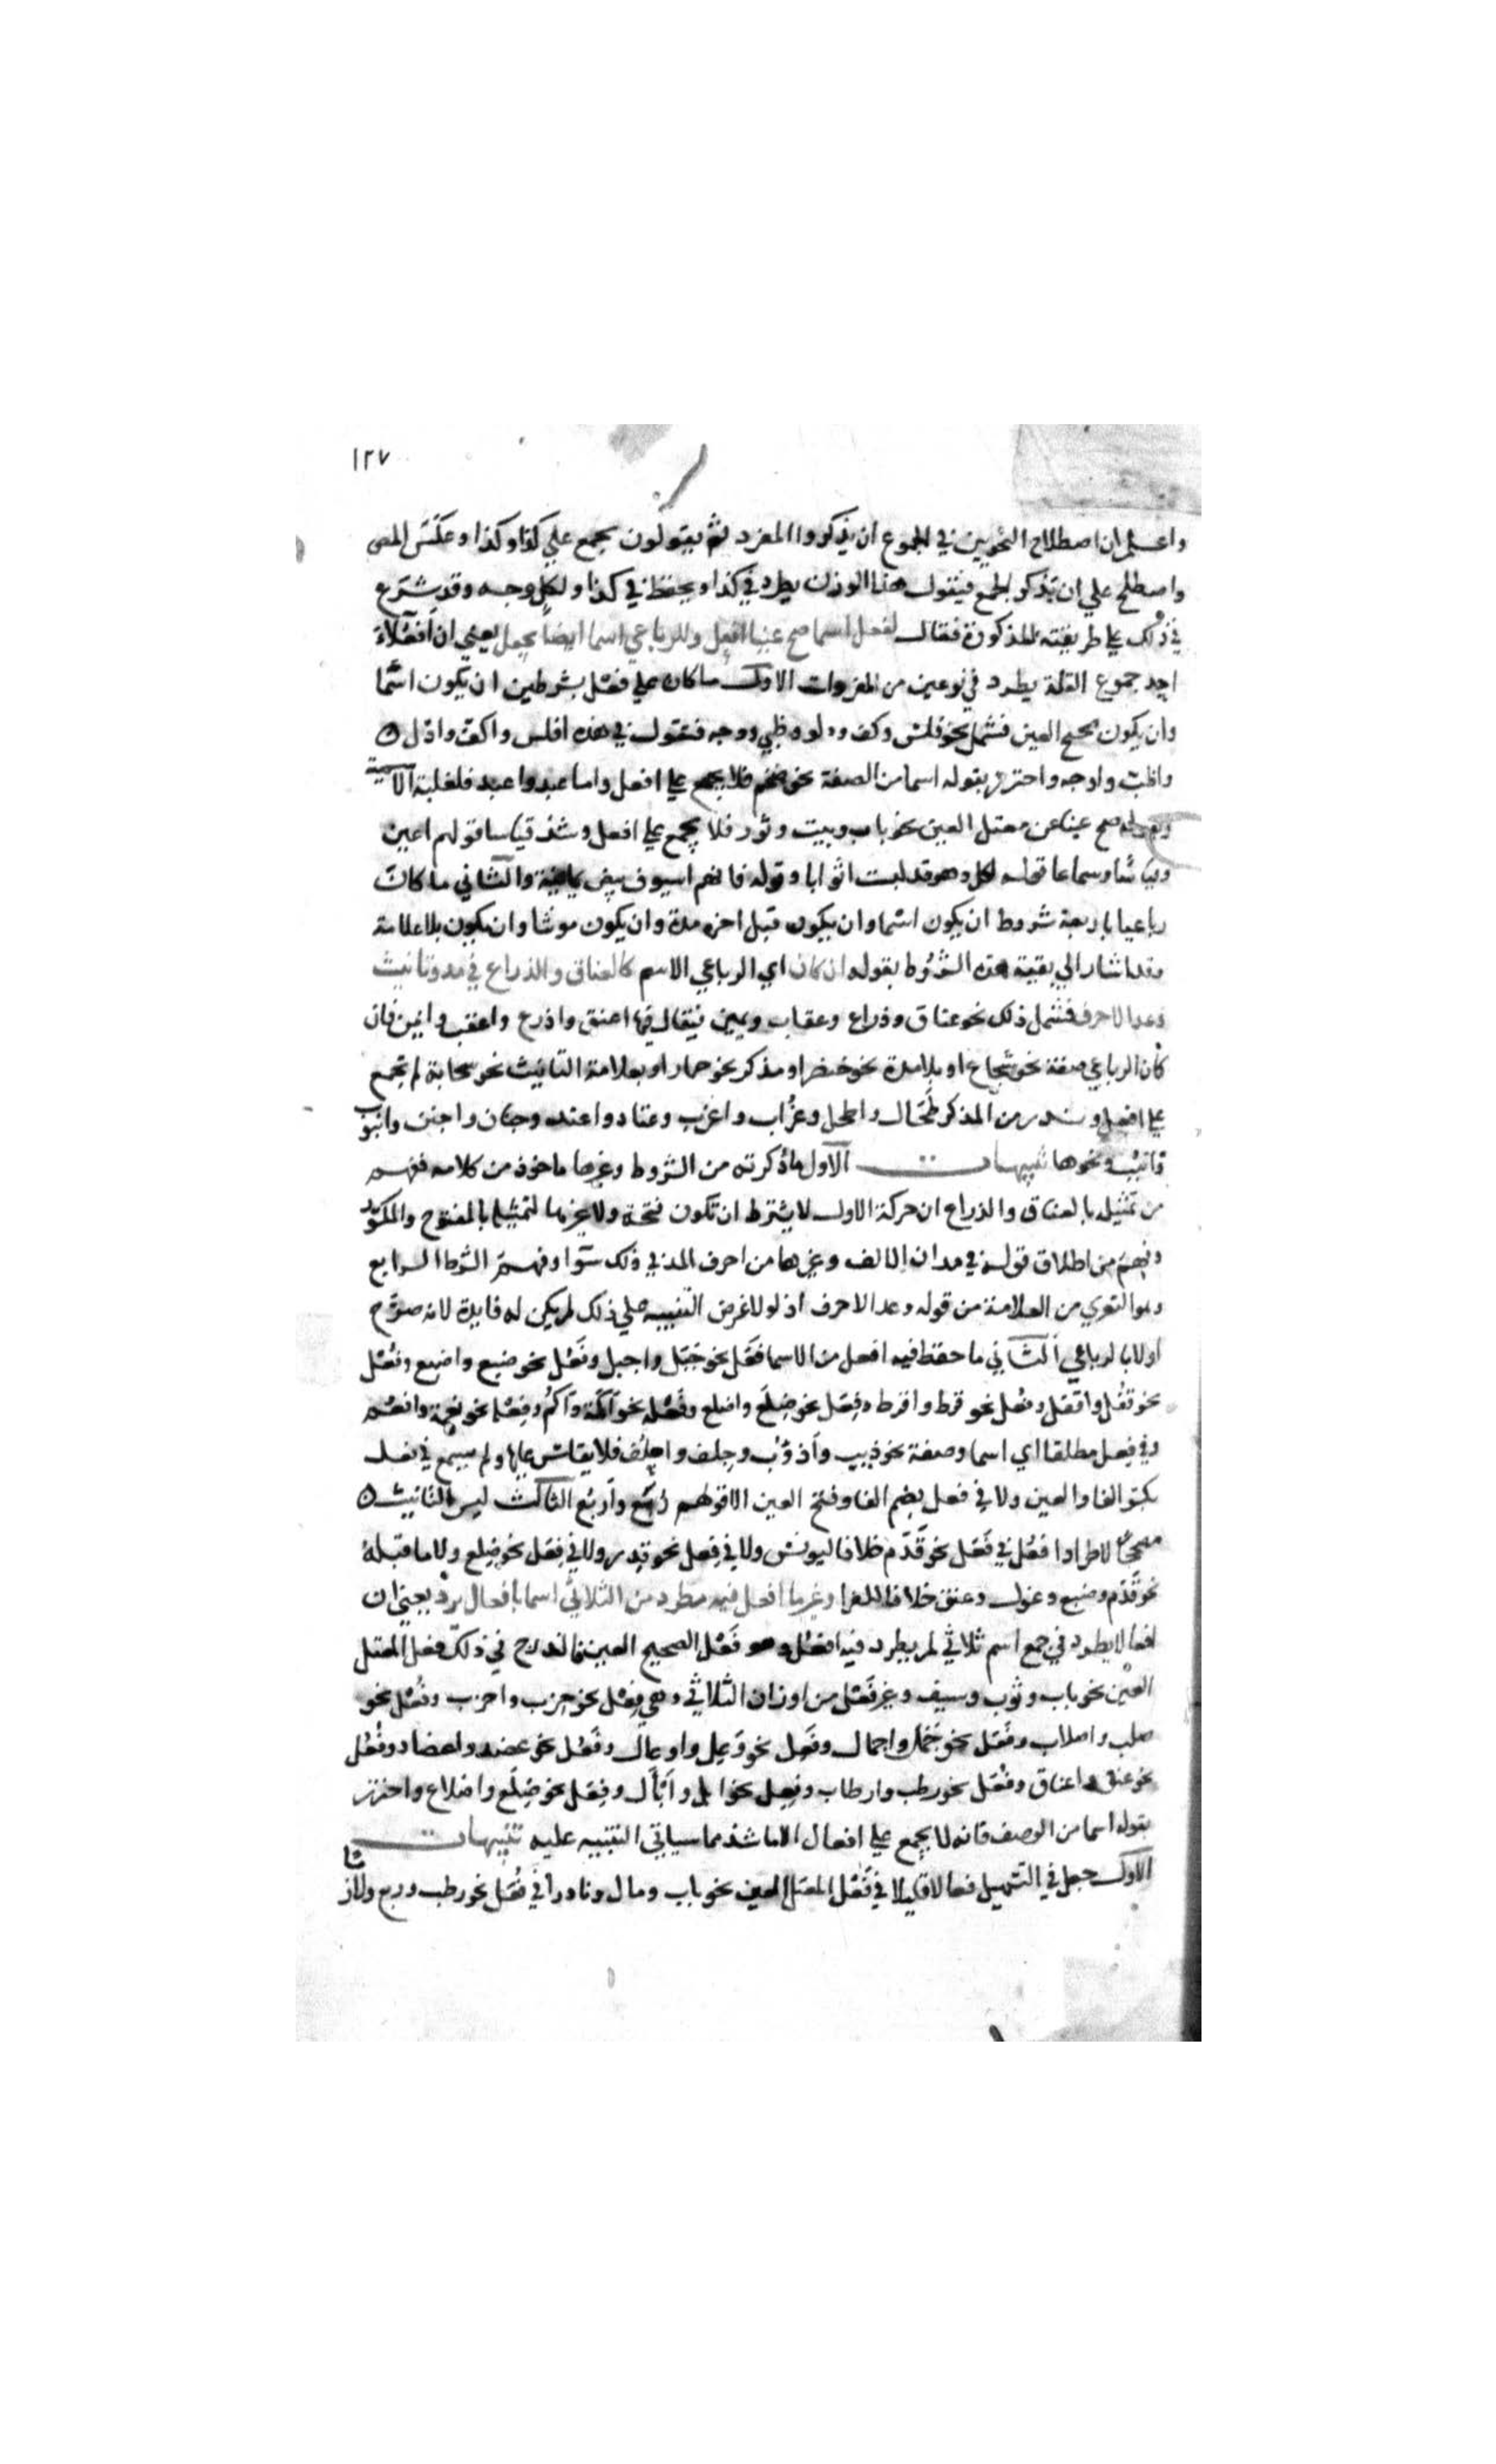 ١٢٧
واعلم ان اصطلاح النحويين في الجموع ان يذكروا المفرد ثم يقولون يجمع علي كذا وكذا وعكس المص
واصطلح علي ان يذكر الجمع فيقول هذا الوزن يطرد في كذا ويحفظ في كذا ولكل وجه وقد شرع
في ذلك علي طريقته المذكورة فقال لفعل اسما صح عينا افعل وللرباعي اسما ايضا يجعل يعني ان افعلا
احد جموع القلة يطرد في نوعين من المفردات الاول ما كان علي فعل بشرطين ان يكون اسما
وان يكون صحيح العين فشمل نحو فلس وكف ودلو وظبي ووجه فتقول في هذه افلس واكف وادل
واظب واوجه واحترز بقوله اسما من الصفة نحو ضخم فلا يجمع علي افعل واما عبد واعبد فلغلبة الاسمية
وبقوله صح عينا عن معتل العين نحو باب وبيت وثور فلا يجمع علي افعل وشذ قياسا قولهم اعين
وقياسا وسماعا قوله لكل دهر قد لبست اثوابا وقوله كانهم اسيوف بيض يمانية والثاني ما كان
رباعيا باربعة شروط ان يكون اسما وان يكون قبل اخره مدة وان يكون مونثا وان يكون بلا علامة
وقد اشار الي بقية هذه الشروط بقوله ان كان اي الرباعي الاسم كالعناق والذراع في مد وتانيث
وعد الاحرف فشمل ذلك نحو عناق وذراع وعقاب ويمين فيقال فيها اعنق واذرع واعقب وايمن فان
كان الرباعي صفة نحو شجاع او بلا مدة نحو خنصر او مذكر نحو حمار او بعلامة التانيث نحو سحابة لم يجمع
علي افعل وندر من المذكر طحال واطحل وغراب واغرب وعتاد واعتد وجنان واجنن وانبوب
فانبب ونحوها تنبيهات الاول ما ذكرته من الشروط وغيرها ماخوذ من كلامه ففهم
من تمثيله بالعناق والذراع ان حركة الاول لا يشترط ان تكون فتحة ولا غيرها لتمثيله بالمفتوح والمكسور
وفهم من اطلاق قوله في مد ان الالف وغيرها من احرف المد في ذلك سوا وفهم الشرط الرابع
وهو التعري من العلامة من قوله وعد الاحرف اذ لولا غرض التنبيه علي ذلك لم يكن له فايدة لانه صرح
اولا بالرباعي الثاني ما حفظ فيه افعل من الاسما فعل نحو جبل واجبل وفعل نحو ضبع واضبع وفعل
نحو قفل واقفل وفعل نحو قرط واقرط وفعل نحو ضلع واضلع وفعلة نحو اكمة وآكم وفعلة نحو نعمة وانعم
وفي فعل مطلقا اي اسما وصفة نحو ذيب واذؤب وجلف واجلف فلا يقاس عليها ولم يسمع في فعل
بكسر الفا والعين ولا في فعل بضم الفا وفتح العين الا قولهم ربع واربع الثالث ليس التانيث
مصححا لاطراد افعل في فعل نحو قدم خلافا ليونس ولا في فعل نحو قدر ولا في فعل نحو ضلع ولا ما قبله
نحو قدم وضبع وغول وعنق خلافا للفرا وغير ما افعل فيه مطرد من الثلاثي اسما بافعال يرد يعني ان
افعالا يطرد في جمع اسم ثلاثي لم يطرد فيه افعل وهو فعل الصحيح العين فاندرج في ذلك فعل المعتل
العين نحو باب وثوب وسيف وغير فعل من اوزان الثلاثي وهي فعل نحو حزب واحزب وفعل نحو
صلب واصلاب وفعل نحو جمل واجمال وفعل نحو وعل واوعال وفعل نحو عضد واعضاد وفعل
نحو عنق واعناق وفعل نحو رطب وارطاب وفعل نحو ابل وآبال وفعل نحو ضلع واضلاع واحترز
بقوله اسما من الوصف فانه لا يجمع علي افعال الا ما شذ مما سياتي التنبيه عليه تنبيهات
الاول جعل في التسهيل فعالا قليلا في فعل المعتل العين نحو باب ومال ونادرا في فعل نحو رطب وربع ولاز
ما